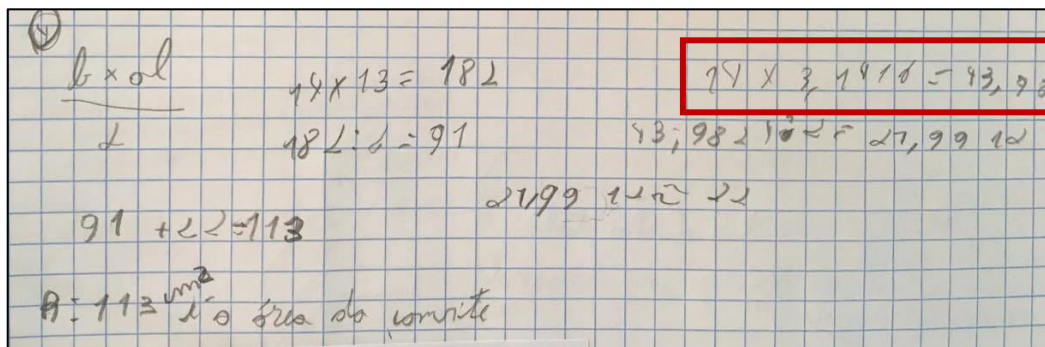 4
b × al
2
14 × 13 = 182
182 : 2 = 91
14 × 3,1416 = 43,98
43,982 4 : 2 = 21,99 12
21,99 12 ≈ 22
91 + 22 = 113
R: 113 cm² é a área do convite